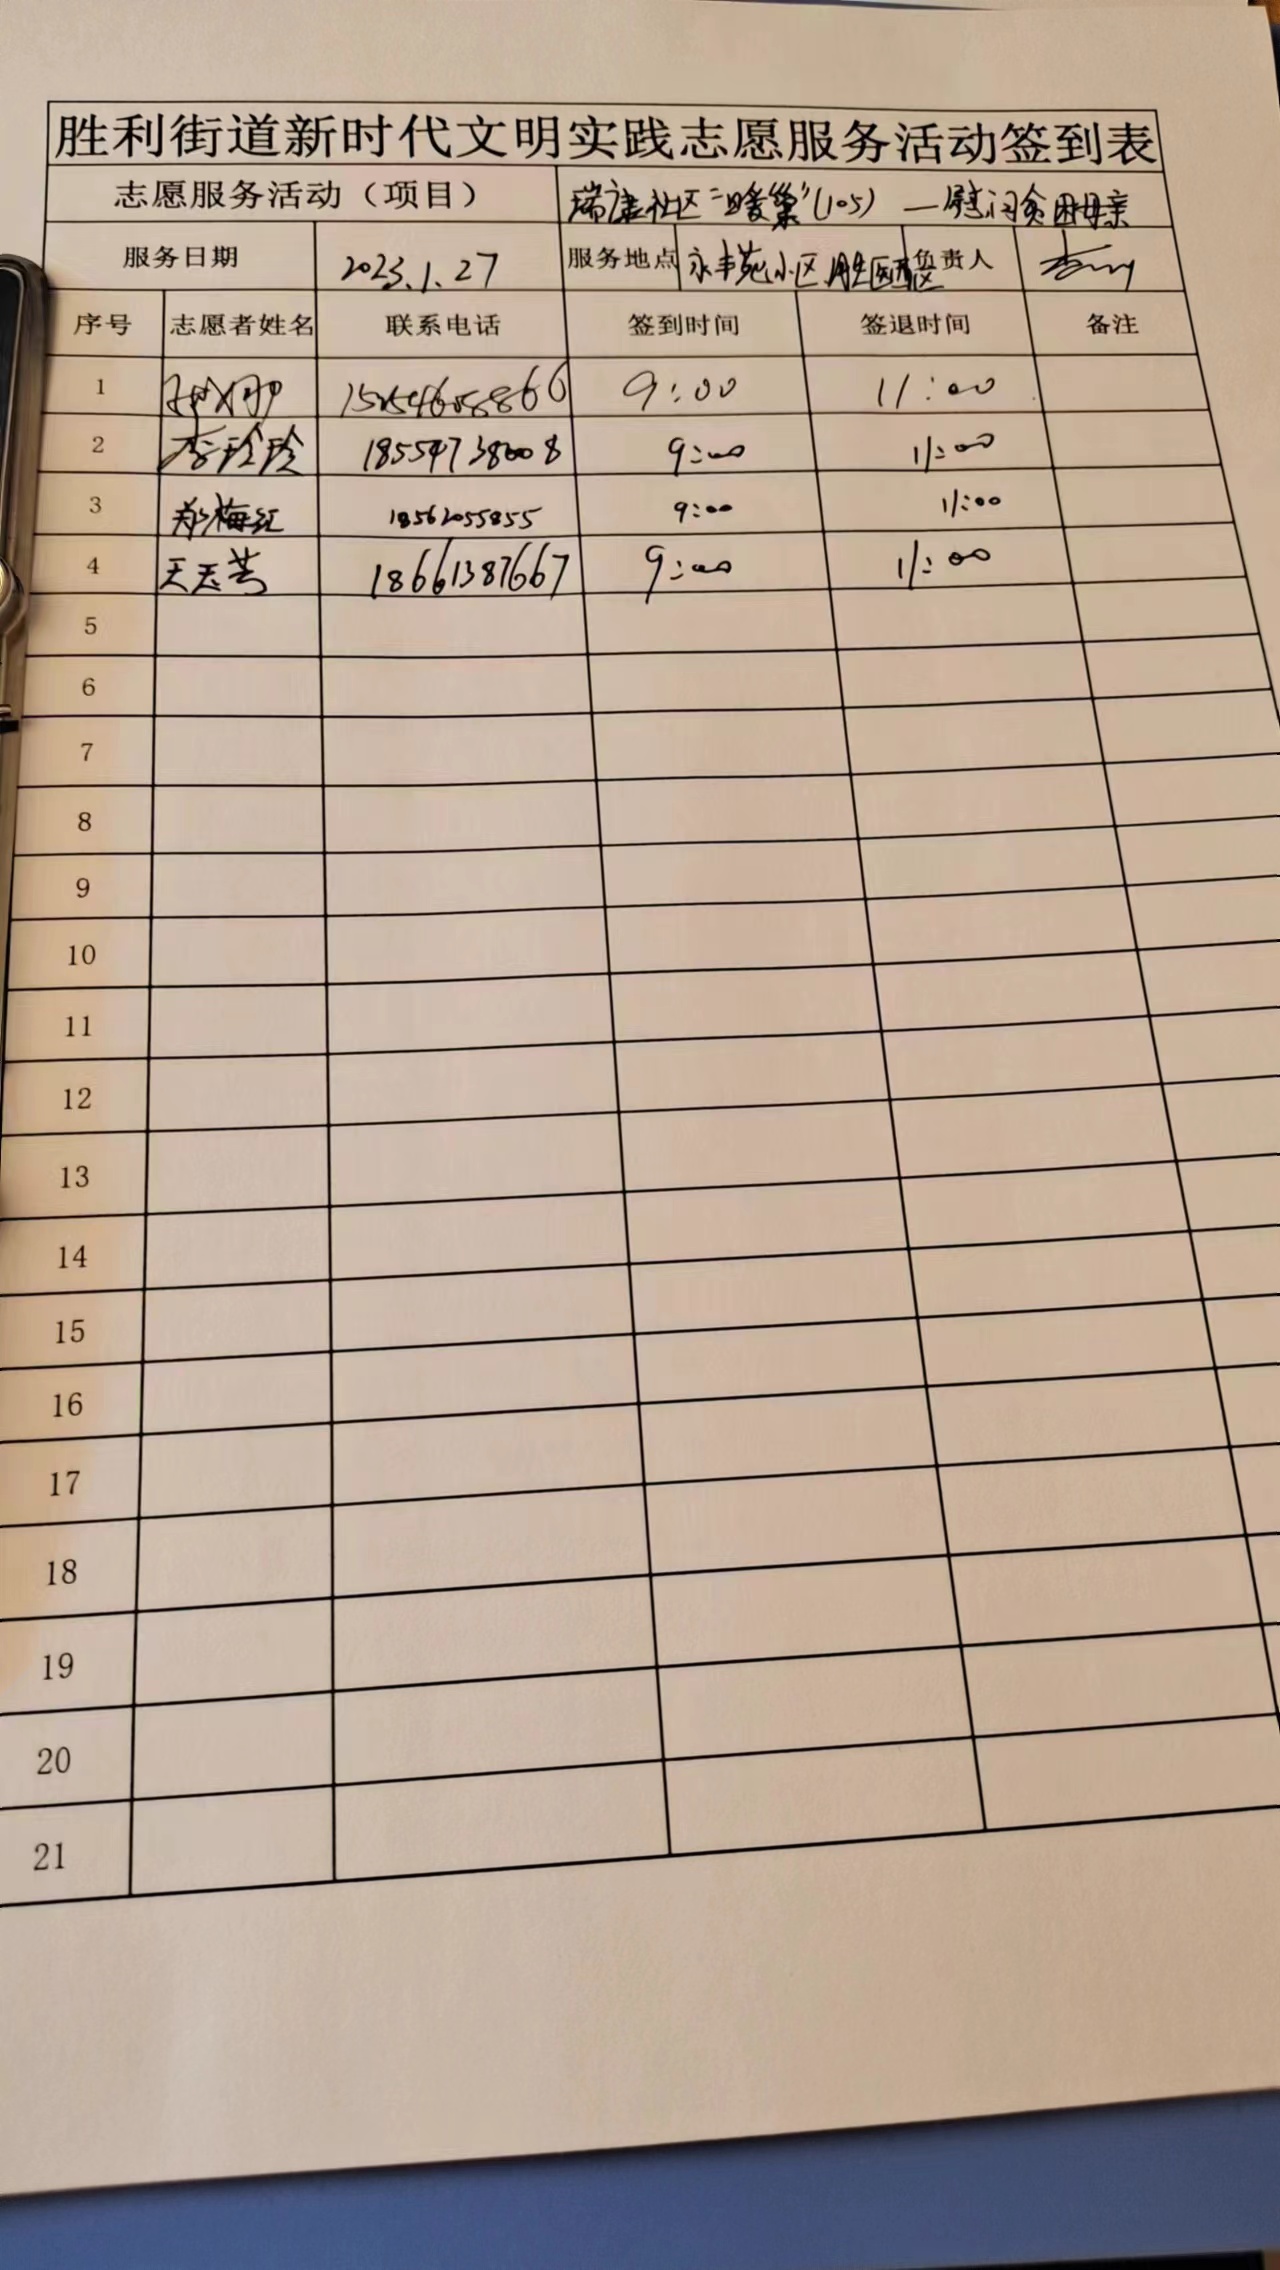 胜利街道新时代文明实践志愿服务活动签到表
志愿服务活动（项目） 瑞康社区"暖巢"(105) —慰问贫困母亲
服务日期 2023.1.27 服务地点 永丰苑小区 负责人
序号 志愿者姓名 联系电话 签到时间 签退时间 备注
1 9:00 11:00
2 李玲玲 9:00 11:00
3 郑梅红 18562055855 9:00 11:00
4 18661387667 9:00 11:00
5
6
7
8
9
10
11
12
13
14
15
16
17
18
19
20
21